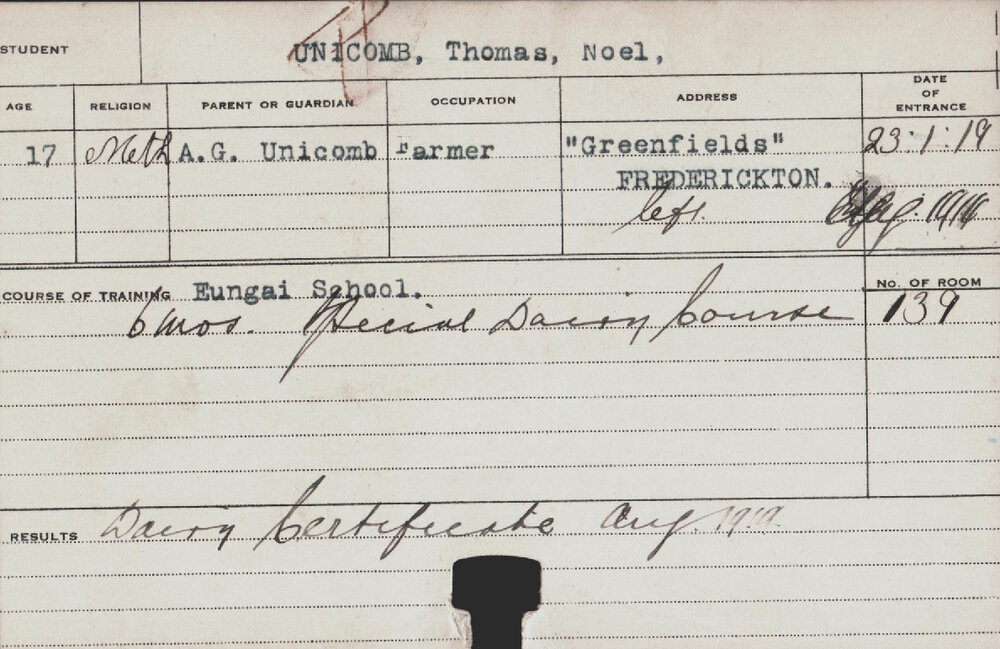 STUDENT UNICOMB, Thomas, Noel,
AGE RELIGION PARENT OR GUARDIAN OCCUPATION ADDRESS DATE OF ENTRANCE
17 Meth A.G. Unicomb Farmer "Greenfields" 23:1:19
FREDERICKTON.
left. Aug. 1919
COURSE OF TRAINING Eungai School. No. OF ROOM
6 mos. Special Dairy Course 139
RESULTS Dairy Certificate Aug. 1919.